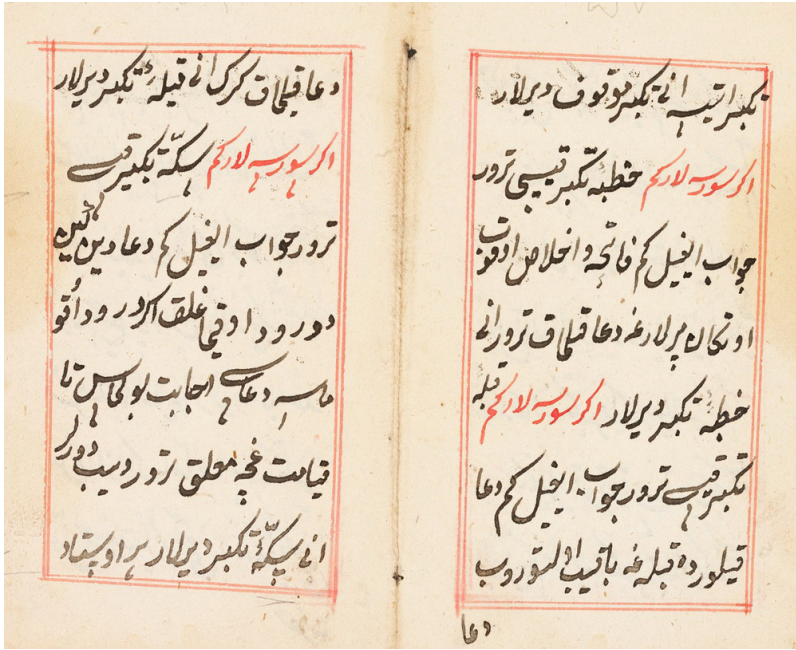 تکبیر ایتیسه انی تکبیر موقوف دیرلار
اکر سورسه لارکم خطبهٔ تکبیر قیسی ترور
جواب ایغیل کم فاتحه و اخلاص اوقوت
اوتکان پیرلارغه دعا قیلماق ترور انی
خطبهٔ تکبیر دیرلار اکر سورسه لارکم قبله
تکبیر قیسی ترور جواب ایغیل کم دعا
قیلورده قبله غه باقیب اولتوروب
دعا
دعا قیلماق کرک انی قبلهٔ تکبیر دیرلار
اکر سورسه لارکم سکّهٔ تکبیر قیسی
ترور جواب ایغیل کم دعادین کین
درود اوقیماغلق اکر درود اُقو
ماسه دعاسی اجابت بولماس تا
قیامت غچه معلق ترور دیب دورلر
انی سکّهٔ تکبیر دیرلار هر اوستاد